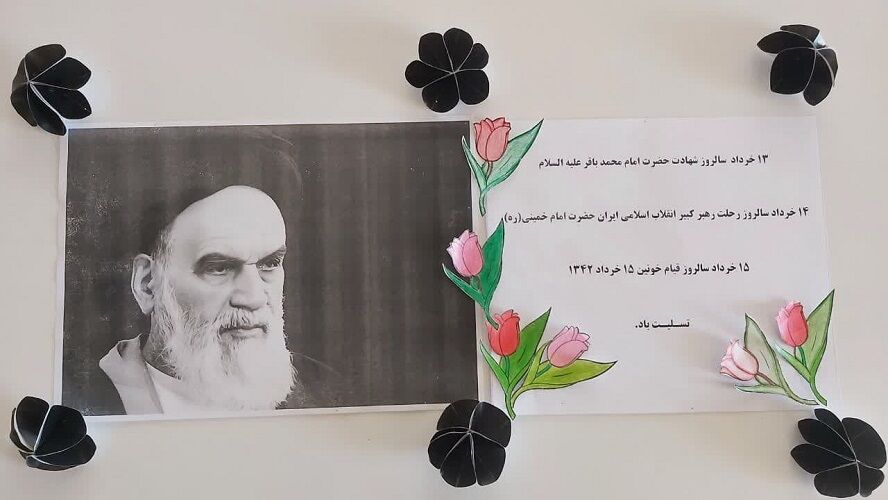 ۱۳ خرداد سالروز شهادت حضرت امام محمد باقر علیه السلام
۱۴ خرداد سالروز رحلت رهبر کبیر انقلاب اسلامی ایران حضرت امام خمینی(ره)
۱۵ خرداد سالروز قیام خونین ۱۵ خرداد ۱۳۴۲
تسـلـیـت باد.